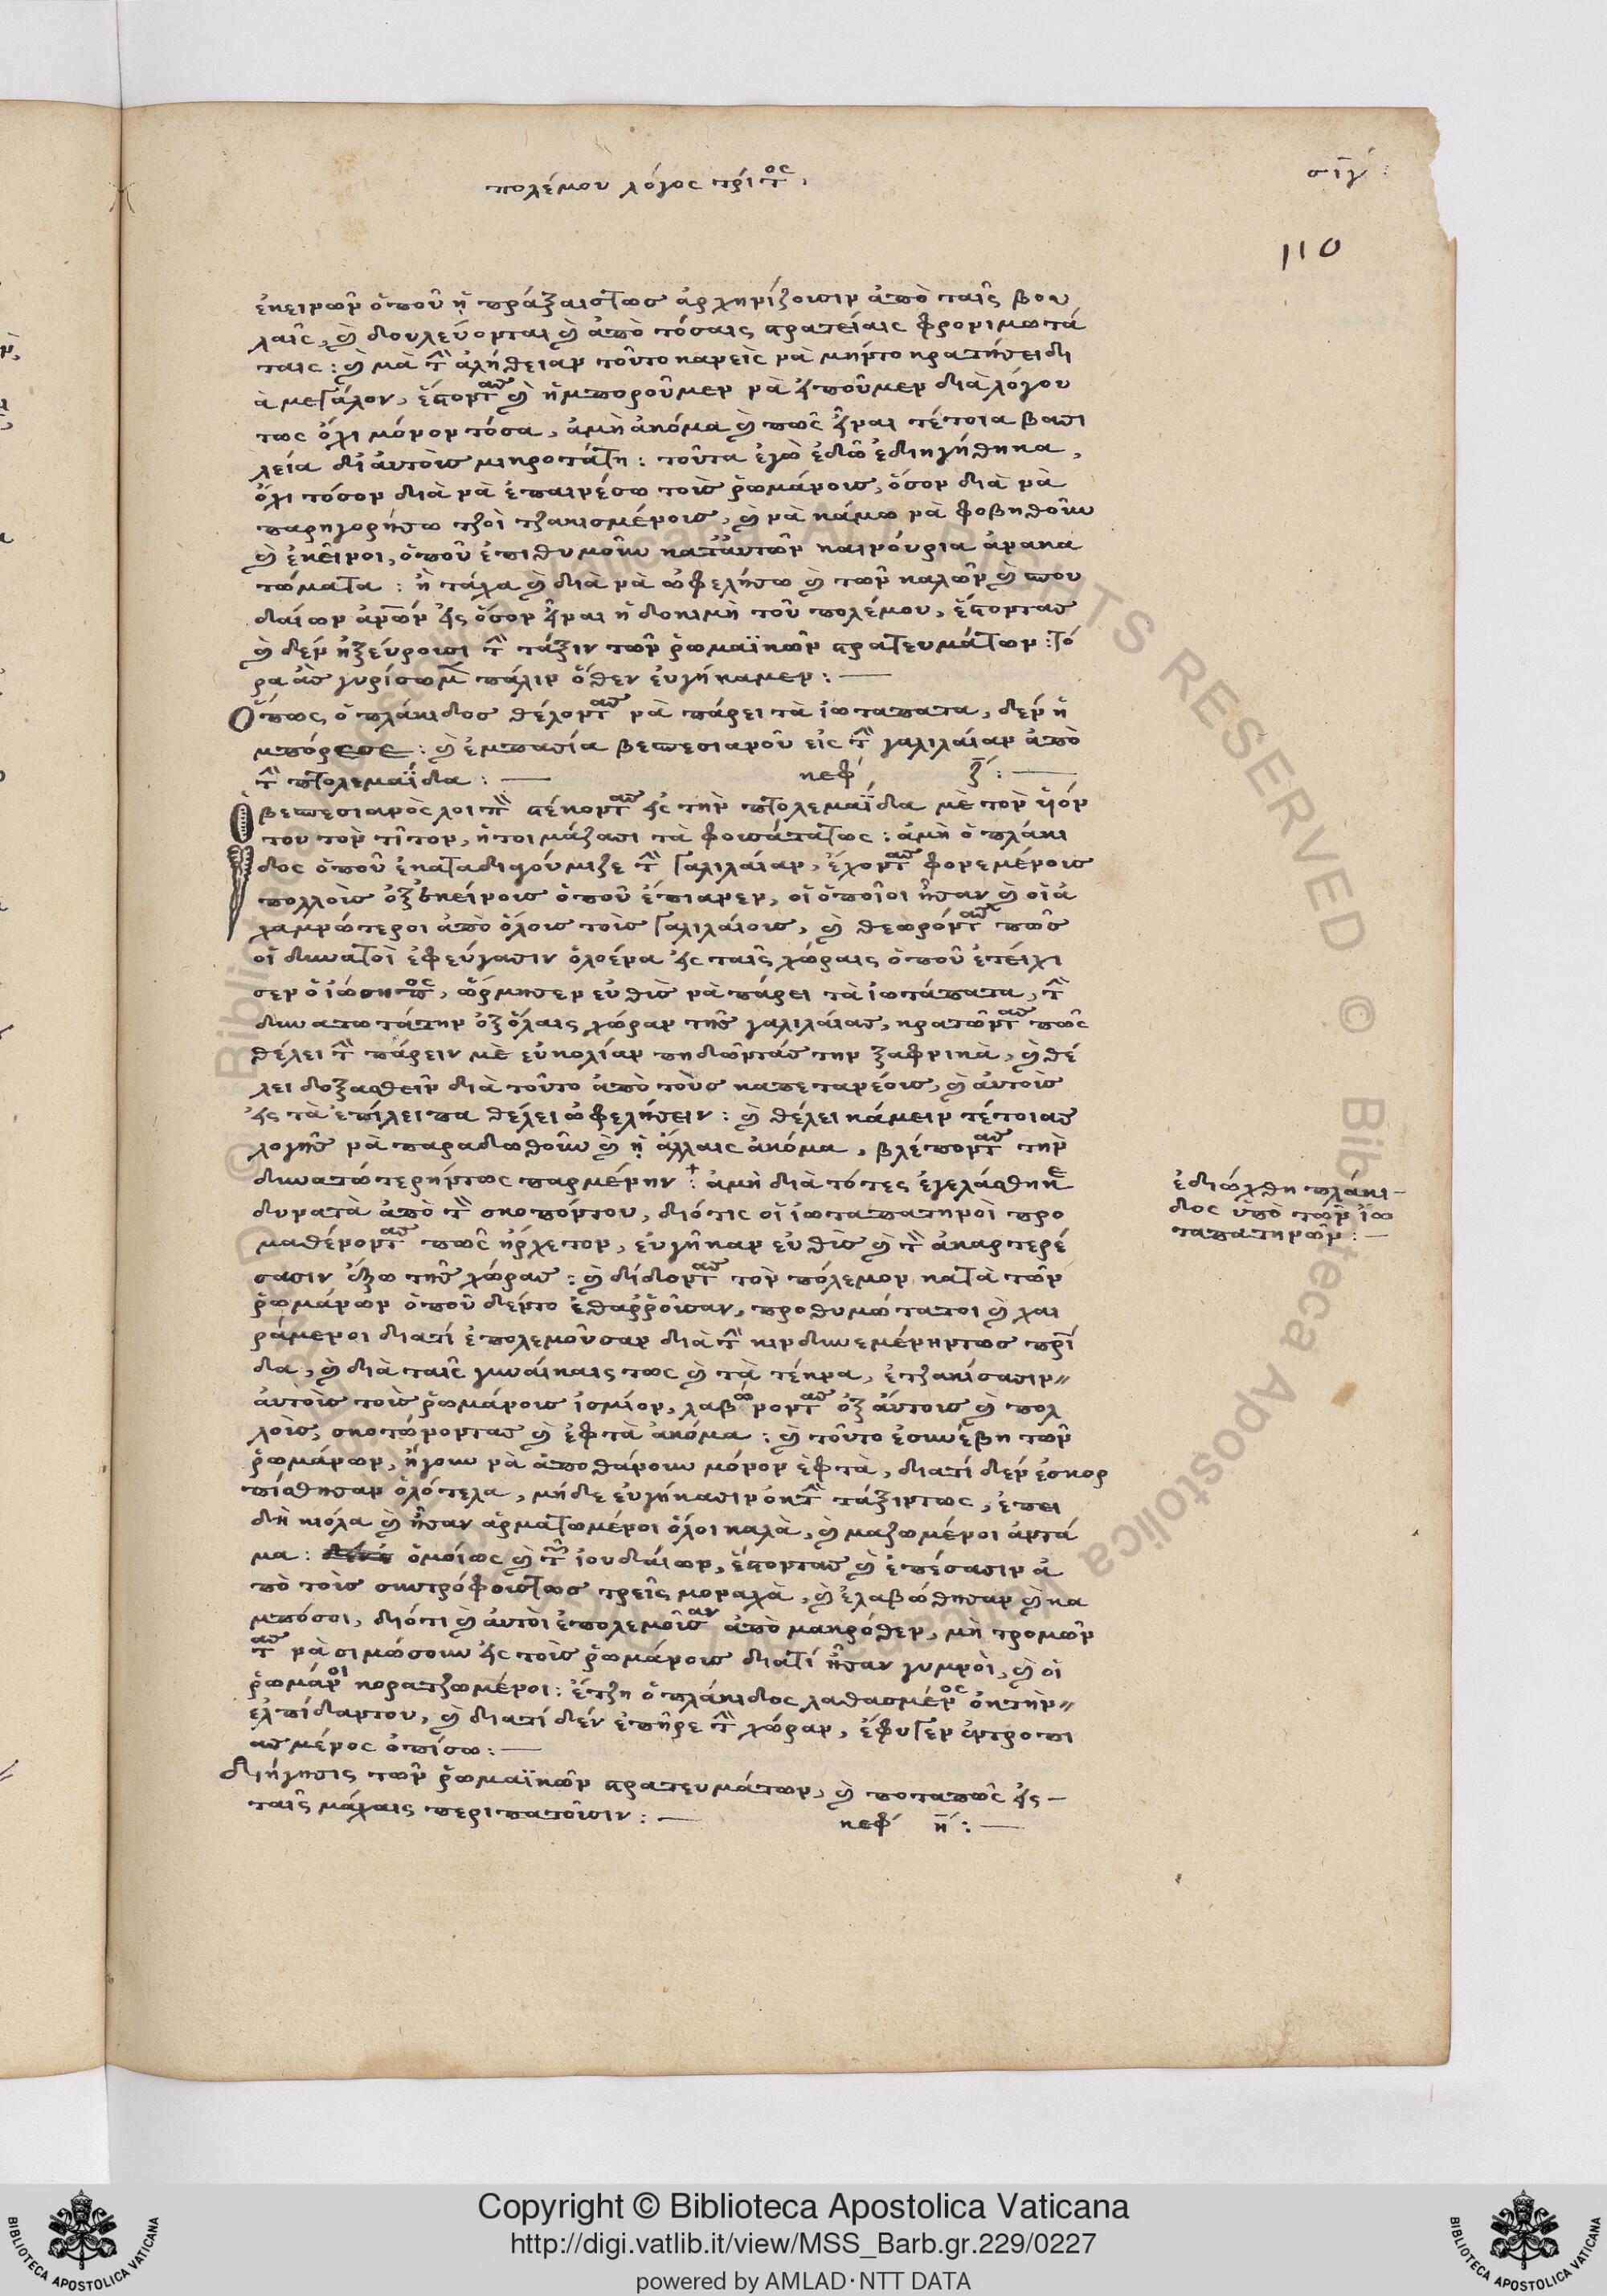 πολέμου λόγος τρίτος,
σιγ΄:
110
ἐκεινῶν ὁποῦ ᾑ πράξαιστως ἀρχηνίζουσιν ἀπὸ ταῖς βου
λαῖς, καὶ δουλεύονται καὶ ἀπὸ τόσαις στρατείαις φρονιμωτά
ταις: καὶ μὰ τὴν ἀλήθειαν τοῦτο κανεὶς νὰ μήντο κρατήσει δι
ὰ μεγάλον, ἔστοντας καὶ ἠμποροῦμεν νὰ εἰποῦμεν διὰ λόγου
τως ὄχι μόνον τόσα, ἀμὴ ἀκόμα καὶ πῶς εἶναι τέτοια βασι
λεία δι αὐτοὺς μικροτάτη: τοῦτα ἐγὼ ἐδῶ ἐδιηγήθηκα,
ὄχι τόσον διὰ νὰ ἐπαινέσω τοὺς ῥωμάνους, ὅσον διὰ νὰ
παρηγορήσω τζοὶ τζακισμένους, καὶ νὰ κάμω νὰ φοβηθοῦν
καὶ ἐκεῖνοι, ὁποῦ ἐπιθυμοῦν κατ αὐτῶν καινούρια ἀνακα
τώματα: ἢ τάχα καὶ διὰ νὰ ὠφελήσω καὶ τῶν καλῶν καὶ σπου
δαίων ἀνθρώπων εἰς ὅσον εἶναι ἡ δοκιμὴ τοῦ πολέμου, ἔστοντας
καὶ δὲν ἠξεύρουσι τὴν τάξιν τῶν ῥωμαϊκῶν στρατευμάτων: τό
ρα ἂς γυρίσωμεν πάλιν ὅθεν εὐγήκαμεν: —
Ὅπως ὁ πλάκιδος θέλοντας νὰ πάρει τὰ ἰωταπατα, δὲν ἠ
μπόρεσε: καὶ ἐμπασία βεσπεσιανοῦ εἰς τὴν γαλιλαίαν ἀπὸ
τὴν πτολεμαΐδα: — κεφ ζ΄: —
Ὁ βεσπεσιανὸς λοιπὸν στέκοντας εἰς τὴν πτολεμαΐδα μὲ τὸν υἱόν
του τὸν τῖτον, ἤτοι μάζασι τὰ φουσάτατως: ἀμὴ ὁ πλάκι
δος ὁποῦ ἐκαταδιγούμιζε τὴν γαλιλαίαν, ἔχοντας φονεμένους
πολλοὺς ὀξ ἐκείνους ὁποῦ ἐπιανεν, οἱ ὁποῖοι ἦσαν καὶ οἱ ἀ
χαμνώτεροι ἀπὸ ὅλους τοὺς γαλιλαίους, καὶ θεωρόντας πῶς
οἱ δυνατοὶ ἐφεύγασιν ὁλοένα εἰς ταῖς χώραις ὁποῦ ἐτείχι
σεν ὁ ἰώσηπος, ὥρμησεν εὐθὺς νὰ πάρει τὰ ἰωτάπατα, τὴν
δυνατωτάτην ὀξ ὅλαις χώραν τῆς γαλιλαίας, κρατῶντας πῶς
θέλει τὴν πάρειν μὲ εὐκολίαν πηδῶντάς την ξαφνικὰ, καὶ θέ
λει δοξασθεῖν διὰ τοῦτο ἀπὸ τοὺς καπεταρέους, καὶ αὐτοὺς
εἰς τὰ ἐπίλειπα θέλει ὠφελήσειν: καὶ θέλει κάμειν τέτοιας
λογῆς νὰ παραδωθοῦν καὶ ᾑ ἄλλαις ἀκόμα, βλέποντας τὴν
δυνατώτερήντως παρμένην: ἀμὴ διὰ τότες ἐγελάσθηκε
δυνατὰ ἀπὸ τὸν σκοπόντου, διότις οἱ ἰωταπατηνοὶ προ
μαθένοντας πῶς ἤρχετον, εὐγῆκαν εὐθὺς καὶ τὸν ἀκαρτερέ
σασιν ἔξω τῆς χώρας: καὶ δίδοντας τὸν πόλεμον κατὰ τῶν
ῥωμάνων ὁποῦ δέντο ἐθαῤῥοῦσαν, προθυμώτατοι καὶ χαι
ράμενοι διατί ἐπολεμοῦσαν διὰ τὴν κινδυνεμένηντως πατρί
δα, καὶ διὰ ταῖς γυναίκαις τως καὶ τὰ τέκνα, ἐτζακίσασιν
αὐτοὺς τοὺς ῥωμάνους ἰσμίον, λαβώνοντας ὀξ αὐτους καὶ πολ
λοὺς, σκοτώνοντας καὶ ἑφτὰ ἀκόμα: καὶ τοῦτο ἐσυνέβη τῶν
ῥωμάνων, ἤγουν νὰ ἀποθάνουν μόνον ἑφτὰ, διατί δὲν ἐσκορ
πίσθησαν ὁλότελα, μήδε εὐγήκασιν ὀκ τὴν τάξιντως, ἐπει
δὴ κιόλα καὶ ἦσαν ἀρματωμένοι ὅλοι καλὰ, καὶ μαζωμένοι ἀντά
μα: ὁμοίως καὶ τῶν ἰουδαίων, ἔστοντας καὶ ἐπέσασιν ἀ
πὸ τοὺς συντρόφουστως τρεῖς μοναχὰ, καὶ ἐλαβώθησαν καὶ κα
μπόσοι, διότι καὶ αὐτοὶ ἐπολεμοῦσαν ἀπὸ μακρόθεν, μὴ τρομῶν
τας νὰ σιμώσουν εἰς τοὺς ῥωμάνους διατί ἦσαν γυμνοὶ, καὶ οἱ
ῥωμάνοι κορατζωμένοι: ἔτζη ὁ πλάκιδος λαθασμένος ὀκ τὴν
ἐλπίδαντου, καὶ διατί δὲν ἐπῆρε τὴν χώραν, ἔφυγεν ἐντροπι
ασμένος ὀπίσω: —
Διήγησις τῶν ῥωμαϊκῶν στρατευμάτων, καὶ ποταπῶς εἰς
ταῖς μάχαις περιπατοῦσιν: — κεφ η΄: —
ἐδιώχθη πλάκι-
δος ὑπὸ τῶν ἰω
ταπατηνῶν: —
Copyright © Biblioteca Apostolica Vaticana
http://digi.vatlib.it/view/MSS_Barb.gr.229/0227
powered by AMLAD·NTT DATA
BIBLIOTECA APOSTOLICA VATICANA
BIBLIOTECA APOSTOLICA VATICANA